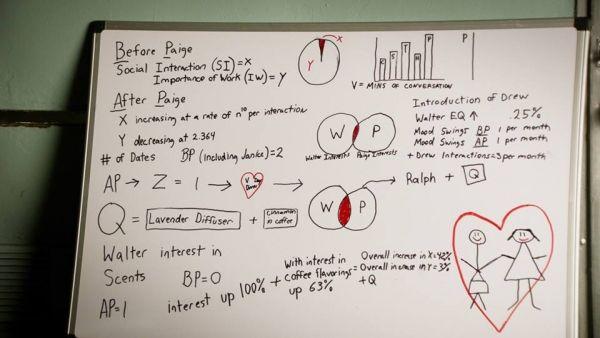 Before Paige
Social Interaction (SI) = X
Importance of Work (IW) = Y
X
Y
K S T H P P
V = MINS OF CONVERSATION
After Paige
X increasing at a rate of n¹⁰ per interaction
Y decreasing at 2.364
# of Dates BP (including Janice) = 2
W P
Walter Interests Paige Interests
Introduction of Drew
Walter EQ ↑ .25%
Mood Swings BP 1 per month
Mood Swings AP 1 per month
+ Drew Interactions = 3 per month
AP → Z = 1 → V Day Dance →
W P
Ralph + Q
Q = Lavender Diffuser + Cinnamon in coffee
Walter interest in
Scents BP = 0
AP = 1 interest up 100% +
With interest in
coffee flavorings =
up 63%
Overall increase in X = 42%
Overall increase in Y = 3%
+ Q